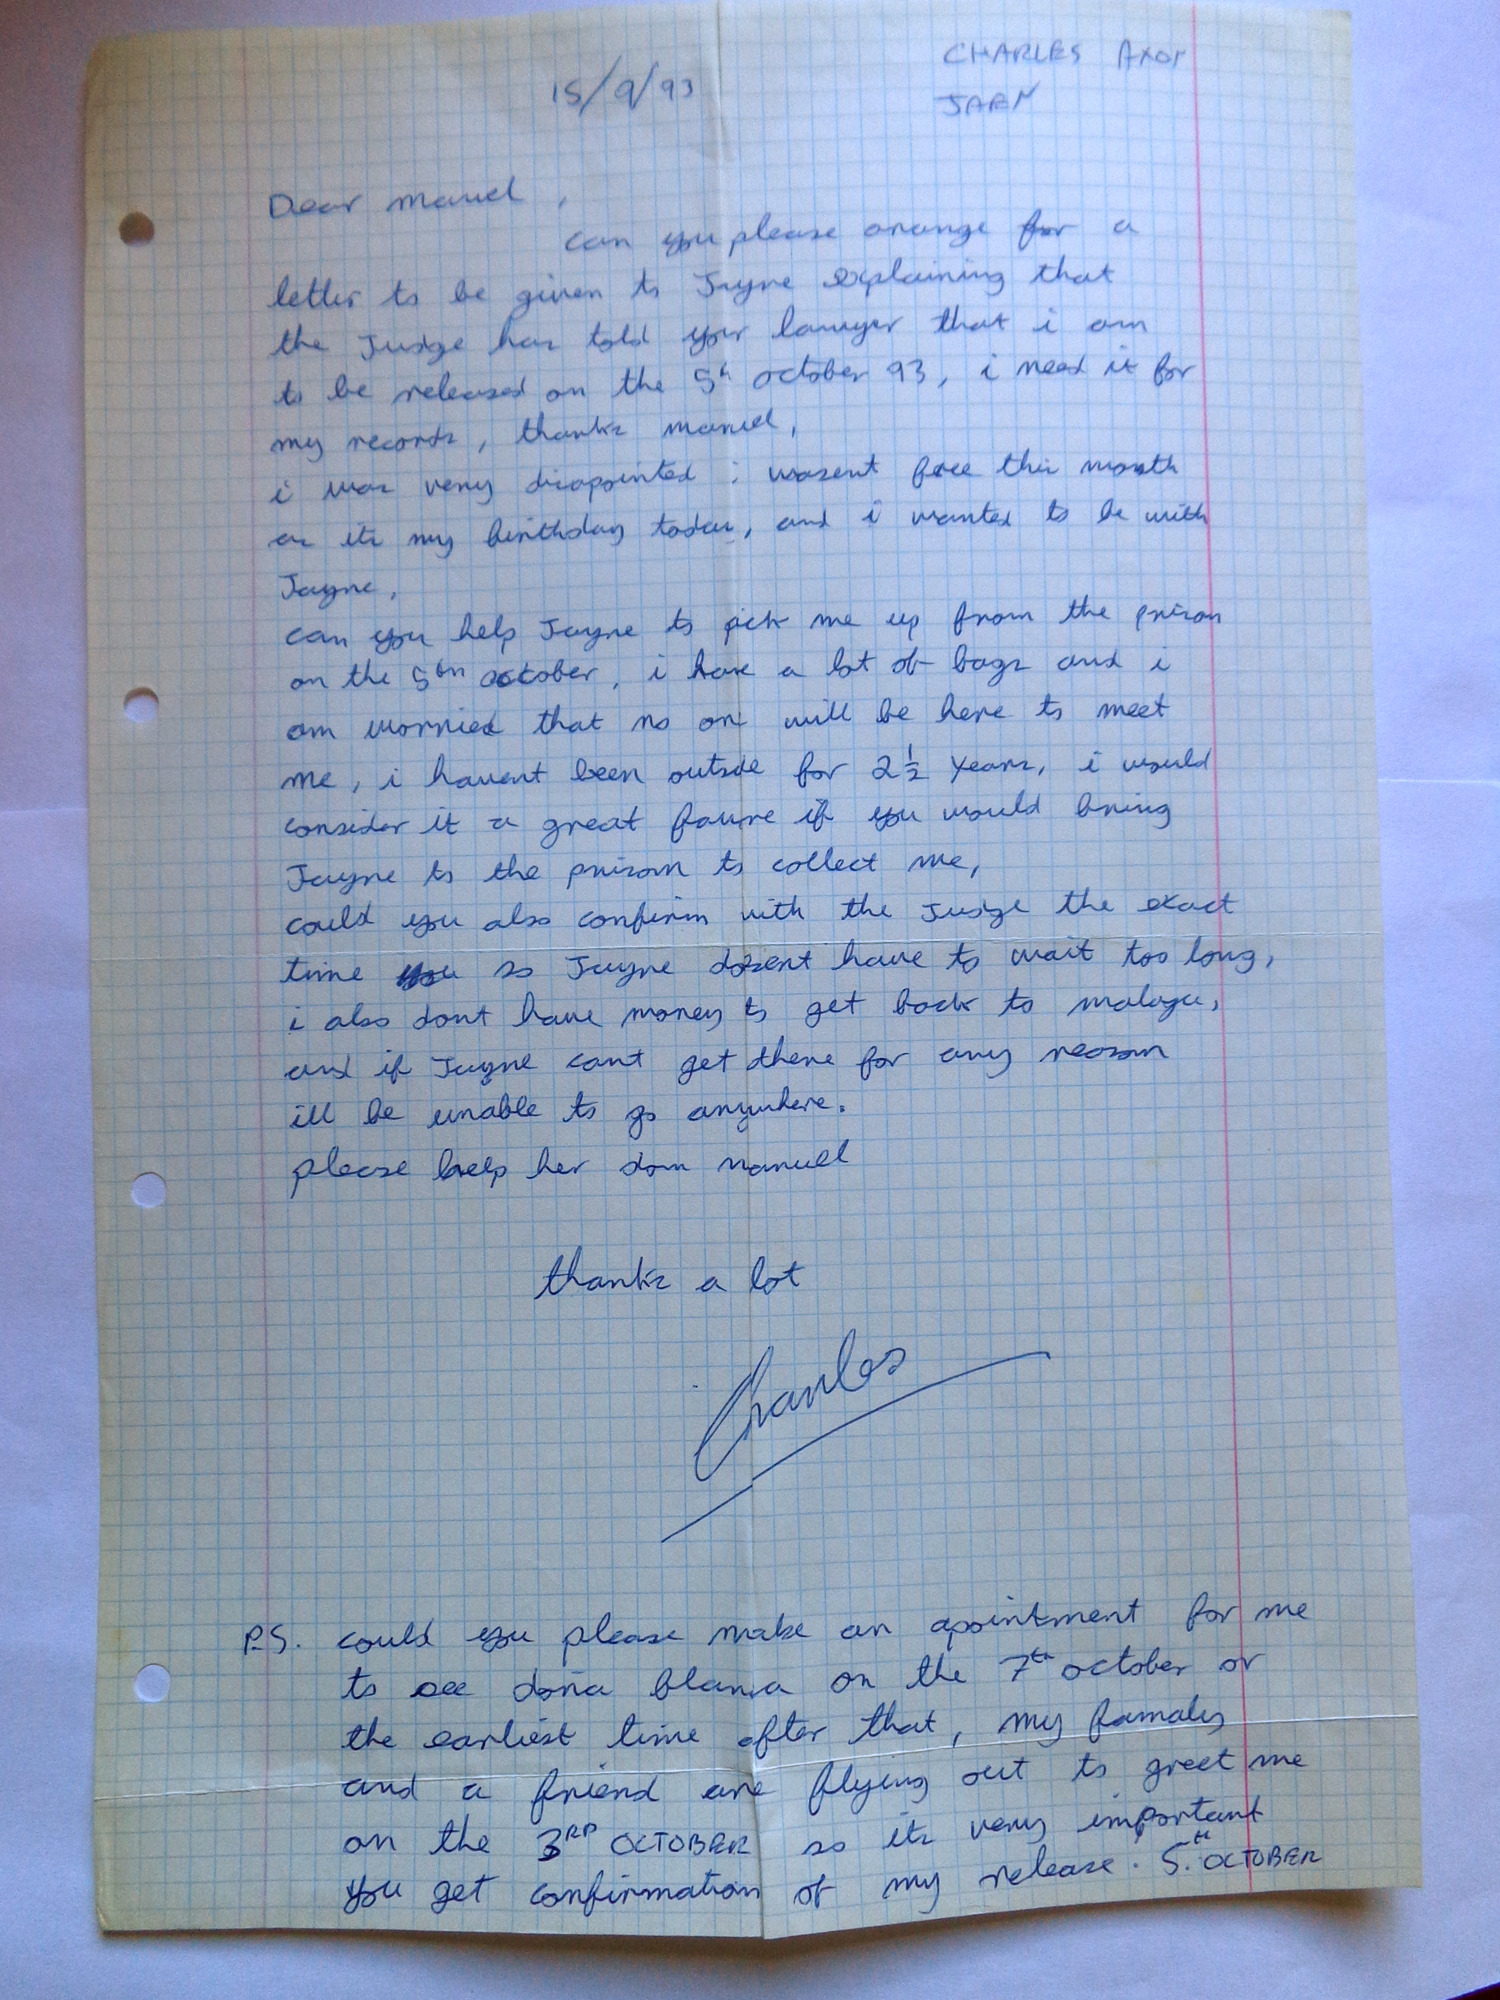 15/9/93
CHARLES Axor
JAEN
Dear manuel,
can you please arange for a
letter to be given to Jayne explaining that
the Judge has told your lawyer that i am
to be released on the 5th october 93, i need it for
my records, thanks manuel,
i was very disapointed i wasent free this month
as its my birthday today, and i wanted to be with
Jayne,
can you help Jayne to pick me up from the prison
on the 5th october, i have a lot of bags and i
am worried that no one will be here to meet
me, i havent been outside for 2½ years, i would
consider it a great favure if you would bring
Jayne to the prison to collect me,
could you also confirm with the Judge the exact
time you so Jayne dosent have to wait too long,
i also dont have money to get back to malaga,
and if Jayne cant get there for any reason
ill be unable to go anywhere.
please help her don manuel
thanks a lot
Charles
P.S. could you please make an apointment for me
to see doña blanca on the 7th october or
the earliest time after that, my famaly
and a friend are flying out to greet me
on the 3RD OCTOBER so its very important
you get confirmation of my release. 5.th OCTOBER